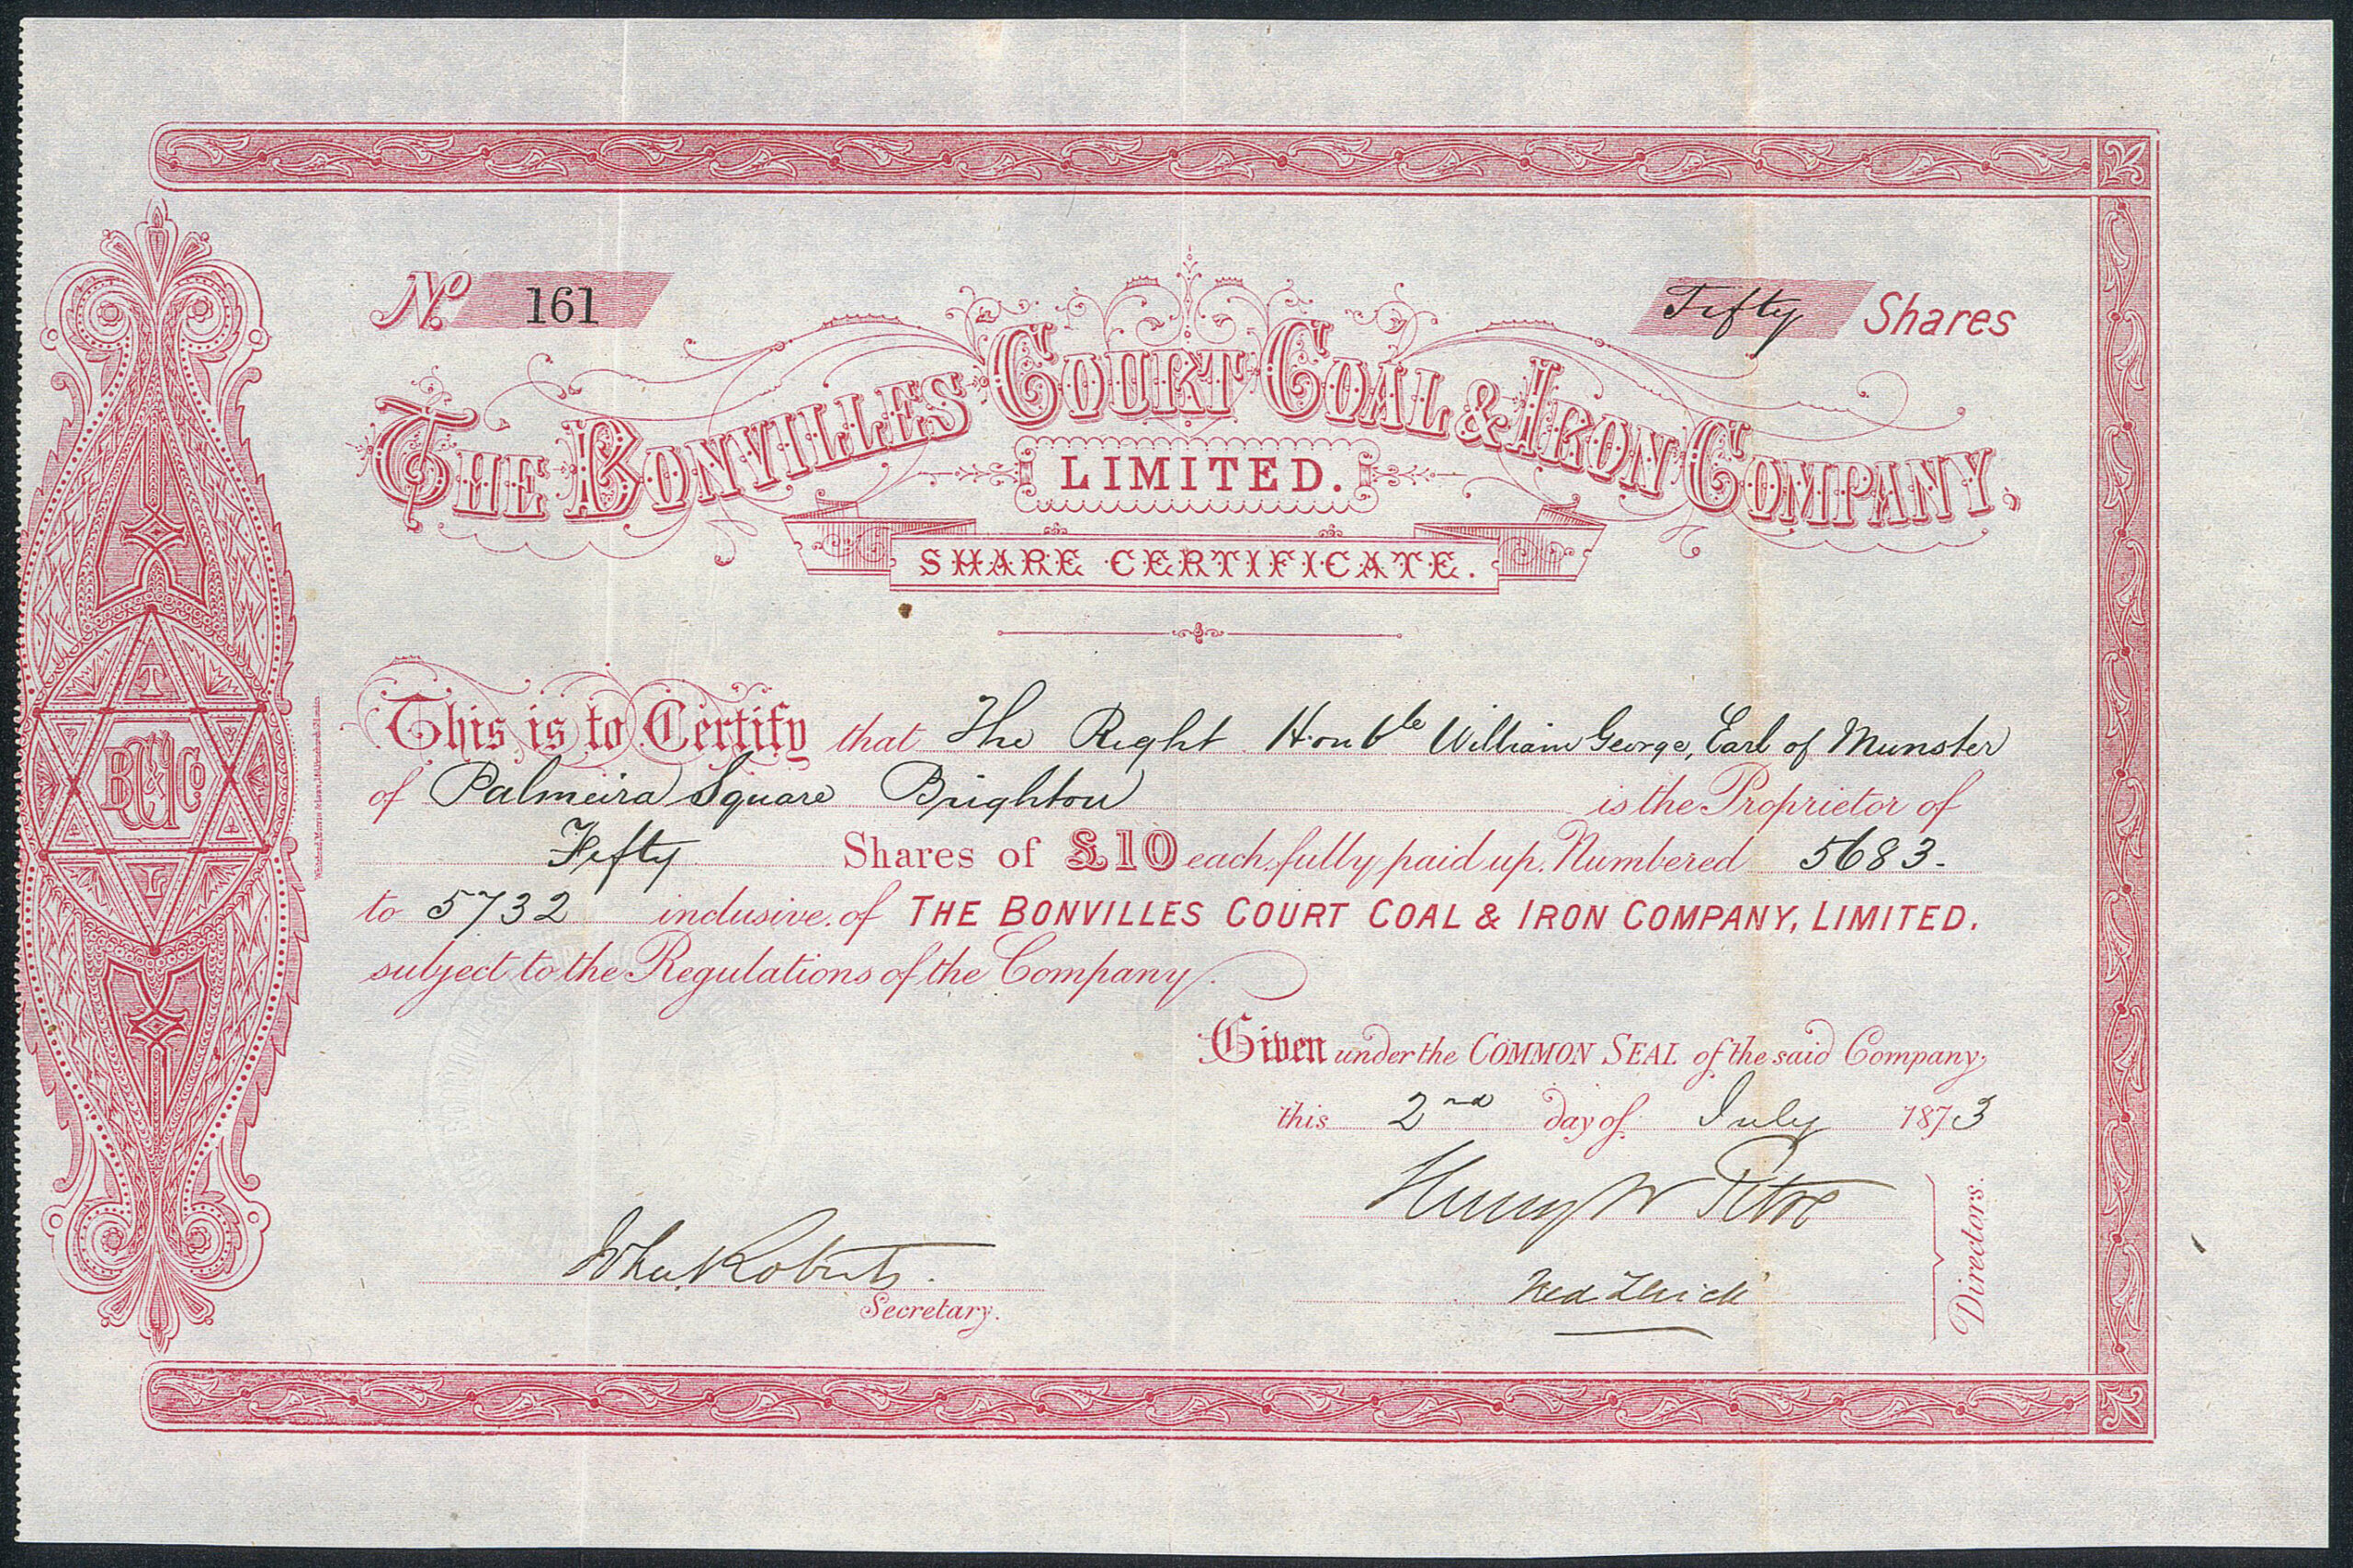 No. 161
Fifty Shares
The Bonvilles Court Coal & Iron Company,
LIMITED.
SHARE CERTIFICATE.
This is to Certify that The Right Honble William George, Earl of Munster
of Palmeira Square Brighton is the Proprietor of
Fifty Shares of £10 each, fully paid up. Numbered 5683.
to 5732 inclusive. of THE BONVILLES COURT COAL & IRON COMPANY, LIMITED.
subject to the Regulations of the Company.
Given under the COMMON SEAL of the said Company,
this 2nd day of July 1873
Henry W Petre
John Roberts.
Secretary.
Directors.
T
BCC&ICo
L